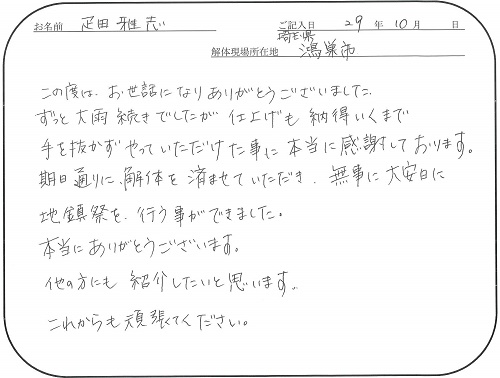 お名前 疋田 雅志 ご記入日 29 年 10 月 日
解体現場所在地 埼玉県 鴻巣市
この度は、お世話になりありがとうございました。
ずっと大雨続きでしたが 仕上げも納得いくまで
手を抜かずやっていただけた事に本当に感謝しております。
期日通りに、解体を済ませていただき、無事に大安日に
地鎮祭を、行う事ができました。
本当にありがとうございます。
他の方にも紹介したいと思います。
これからも頑張ってください。